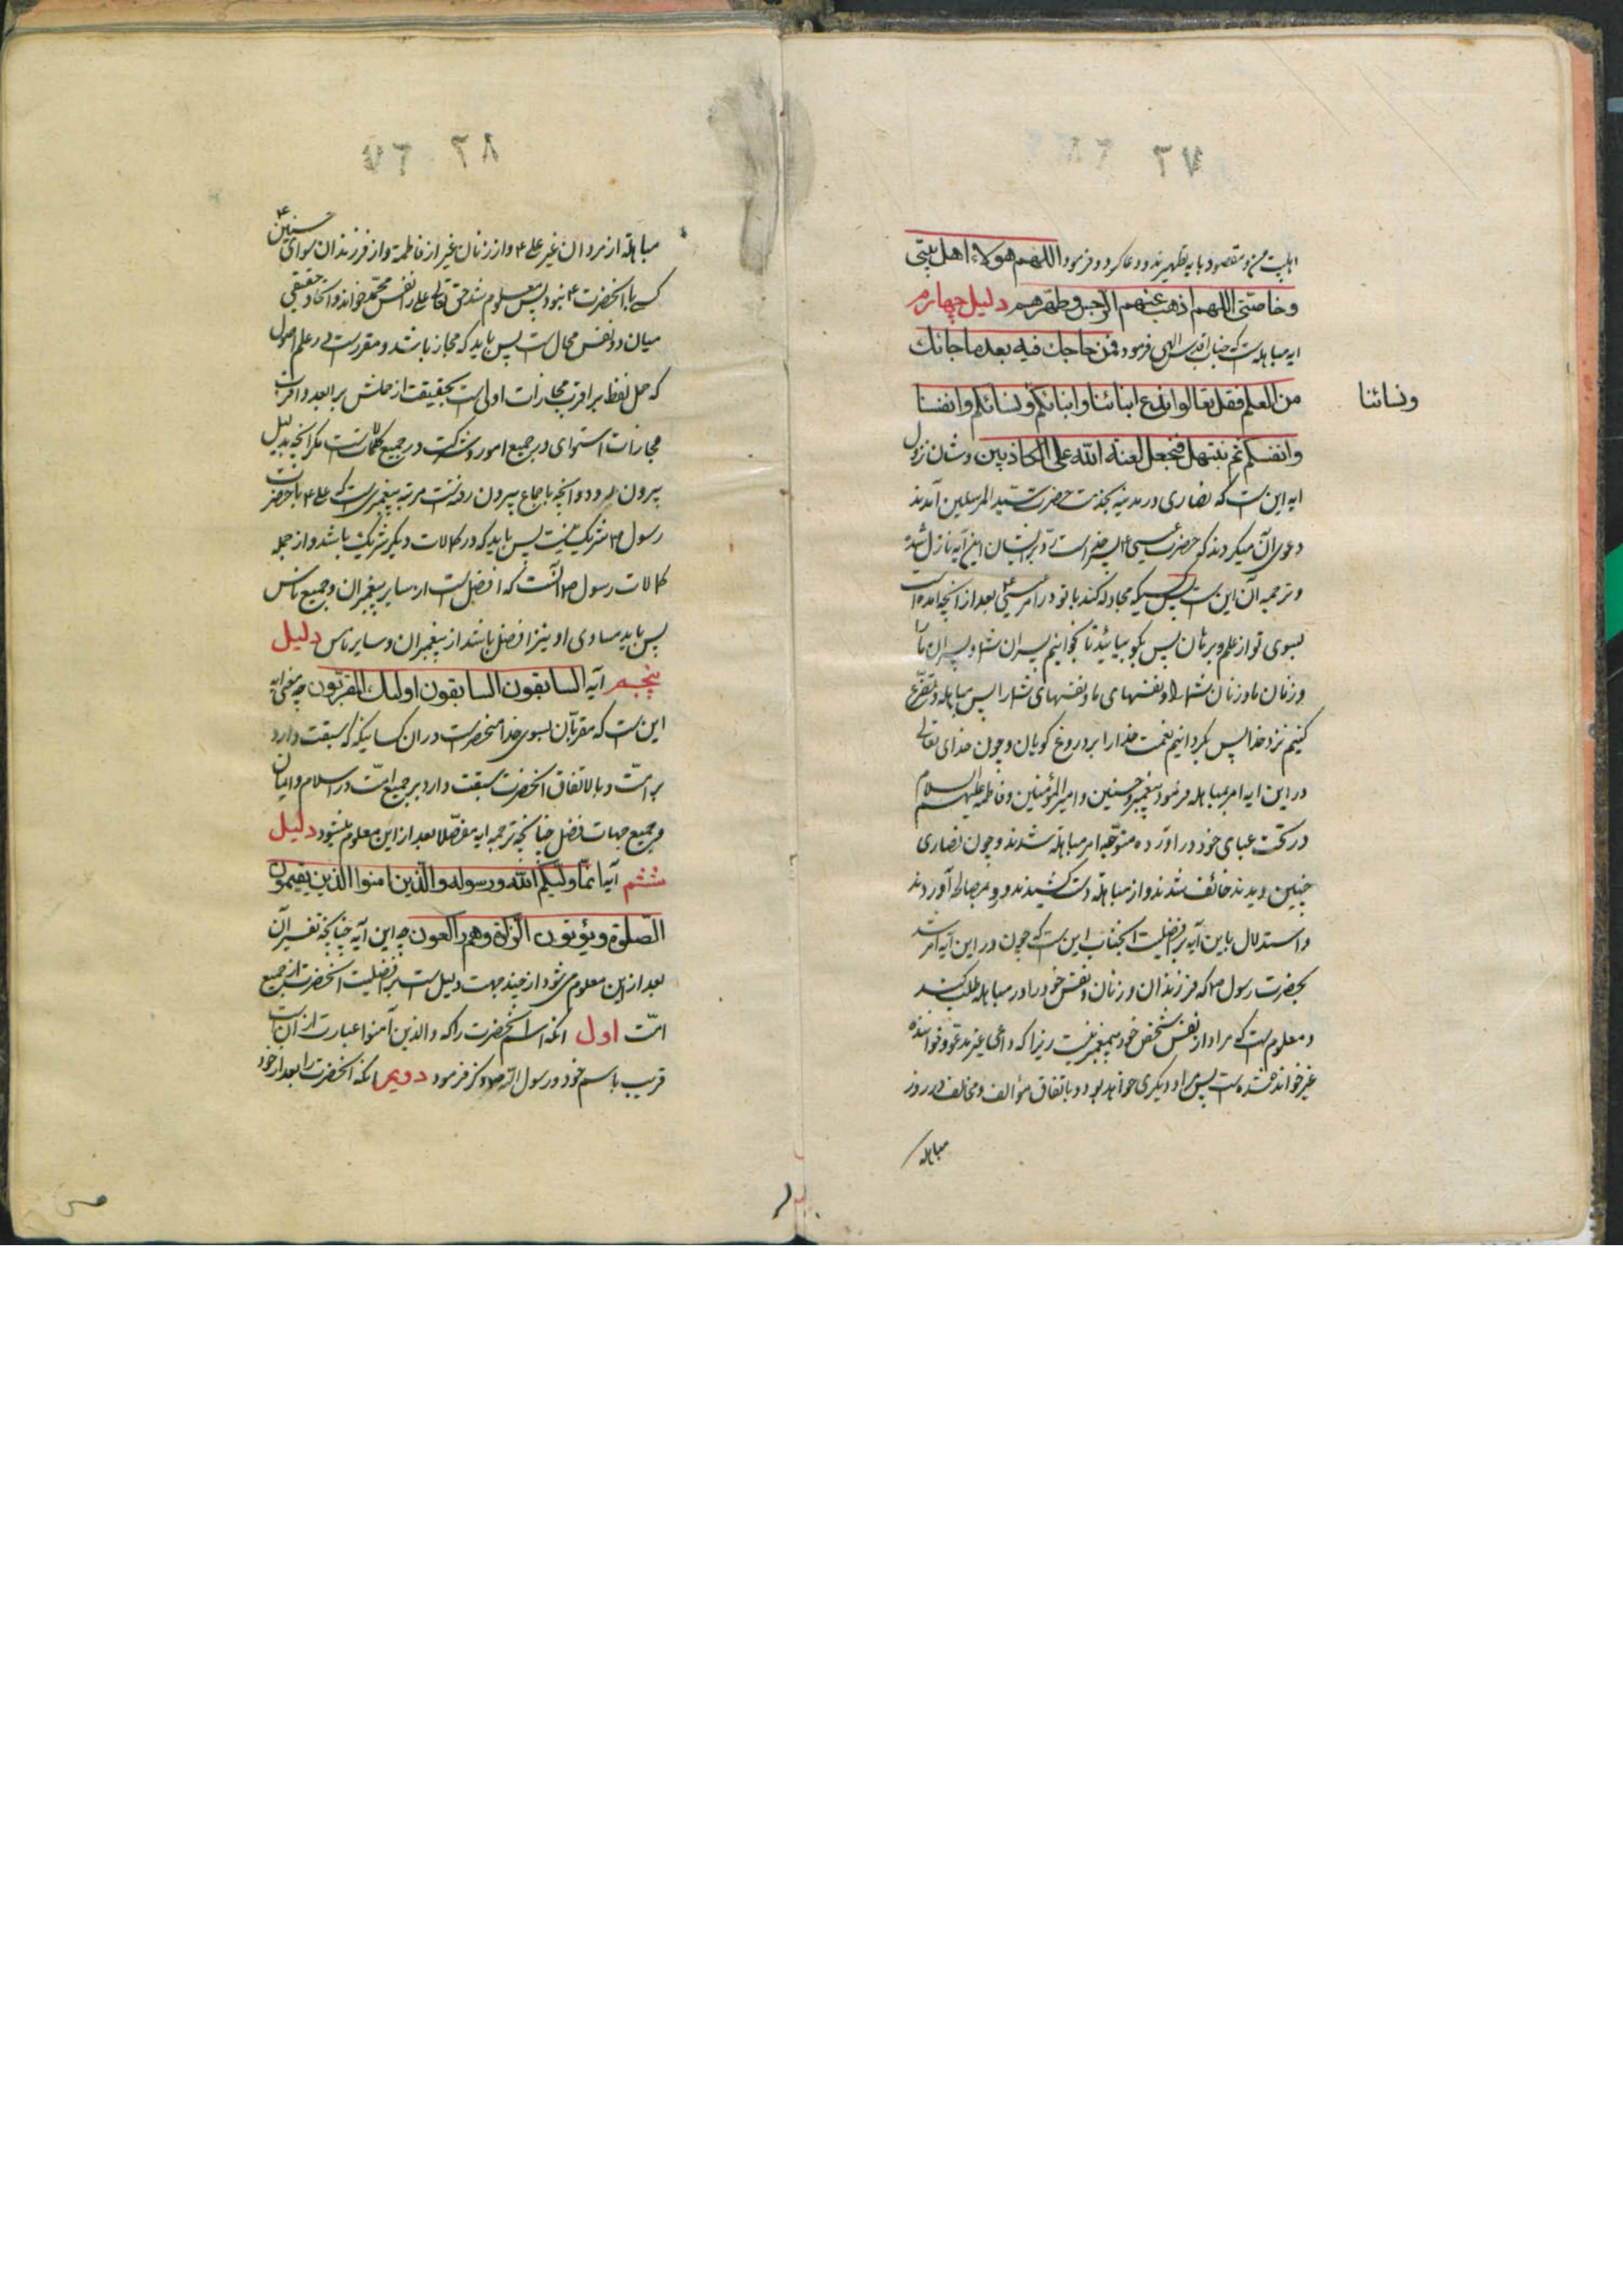 ٦٧
اهلبیت من و مقصود بایه تطهیرند و دعا کرد و فرمود اللهم هولاء اهل بیتی
و خاصتی اللهم اذهب عنهم الرجس و طهرهم دلیل چهارم
ایه مباهله است که جناب اقدس الهی فرمود فمن حاجک فیه بعد ما جائک
من العلم فقل تعالوا ندع ابنائنا و ابنائکم و نسائکم و انفسنا
و نسائنا
و انفسکم ثم نبتهل فنجعل لعنة الله علی الکاذبین و شان نزول
ایه این است که نصاری در مدینه بخدمت حضرت سید المرسلین آمدند
دعوی آن میکردند که حضرت عیسی ع پسر خداست رد بر ایشان این آیه نازل شد
و ترجمه آن این است پس کسیکه مجادله کند با تو در امر عیسی ع بعد از انچه آمده است
بسوی تو از علم و برهان پس بگو بیائید تا بخوانیم پسران شما و پسران ما
و زنان ما و زنان شما را و نفسهای ما و نفسهای شما را پس مباهله و تضرع
کنیم نزد خدا پس بگردانیم لعنت خدا را بر دروغ گویان و چون خدای تعالی
در این ایه امر بمباهله فرمود پیغمبر حسنین و امیر المؤمنین و فاطمه علیهم السلام
در تحت عبای خود در آورده متوجه امر مباهله شدند و چون نصاری
چنین دیدند خائف شدند و از مباهله دست کشیدند و رو بمصالحه آوردند
و استدلال باین آیه بر افضلیت انجناب این است که چون در این آیه امر شد
بحضرت رسول ص که فرزندان و زنان و نفس خود را در مباهله طلب کند
و معلوم است که مراد از نفس شخص خود پیغمبر نیست زیرا که داعی غیر مدعو و خواننده
غیر خوانده شده است پس مراد دیگری خواهد بود و باتفاق مؤالف و مخالف در روز
مباهله
٦٨
مباهله از مردان غیر علی ع و از زنان غیر از فاطمه و از فرزندان سوای حسنین ع
کسی با انحضرت ع نبود پس معلوم شد حق تعالی علی را نفس محمد خوانده و اتحاد حقیقی
میان دو نفس محال است پس باید که مجاز باشد و مقرر است در علم اصول
که حمل لفظ بر اقرب مجازات اولی است بحقیقت از حملش بر ابعد و اقرب
مجازات استوای در جمیع امور و شرکت در جمیع کمالاتست مگر انچه بدلیل
بیرون رود و انچه باجماع بیرون رفته است مرتبه پیغمبری است که علی ع با حضرت
رسول ص شریک نیست پس باید که در کمالات دیگر شریک باشد و از جمله
کمالات رسول ص آنست که افضل است از سایر پیغمبران و جمیع ناس
پس باید مساوی او نیز افضل باشد از پیغمبران و سایر ناس دلیل
پنجم آیه السابقون السابقون اولئک المقربون چه معنی ایه
این است که مقربان بسوی خدا منحصر است در ان کسانیکه که سبقت دارد
بر امت و بالاتفاق انحضرت سبقت دارد بر جمیع امت در اسلام و ایمان
و جمیع جهات فضل چنانچه ترجمه ایه مفصلا بعد از این معلوم میشود دلیل
ششم آیه انما ولیکم الله و رسوله و الذین امنوا الذین یقیمون
الصلوة و یؤتون الزکوة و هم راکعون چه این آیه چنانچه تفسیر آن
بعد از این معلوم می شود از چند جهت دلیل است بر افضلیت انحضرت از جمیع
امت اول انکه اسم انحضرت را که و الذین آمنوا عبارت از ان است
قریب باسم خود و رسول الله ص ذکر فرمود دویم انکه انحضرت را بعد از خود